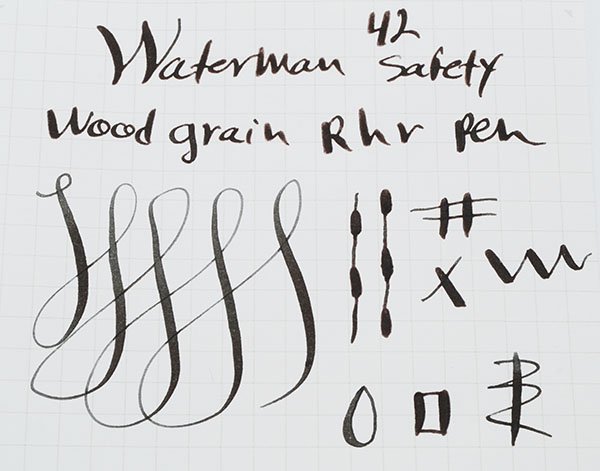 Waterman 42 Safety
Wood grain Rhr Pen